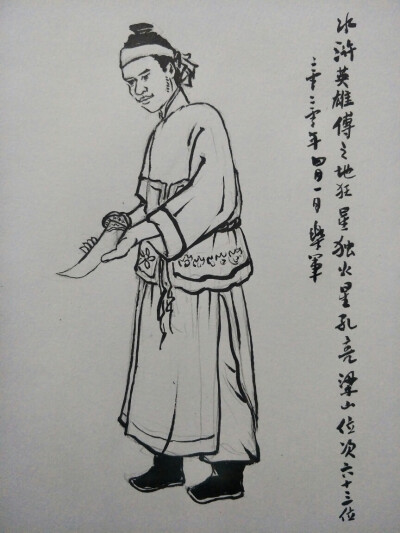 水浒英雄傅之地狂星独火星孔亮梁山位次六十三位
二零二零年四月一日学军